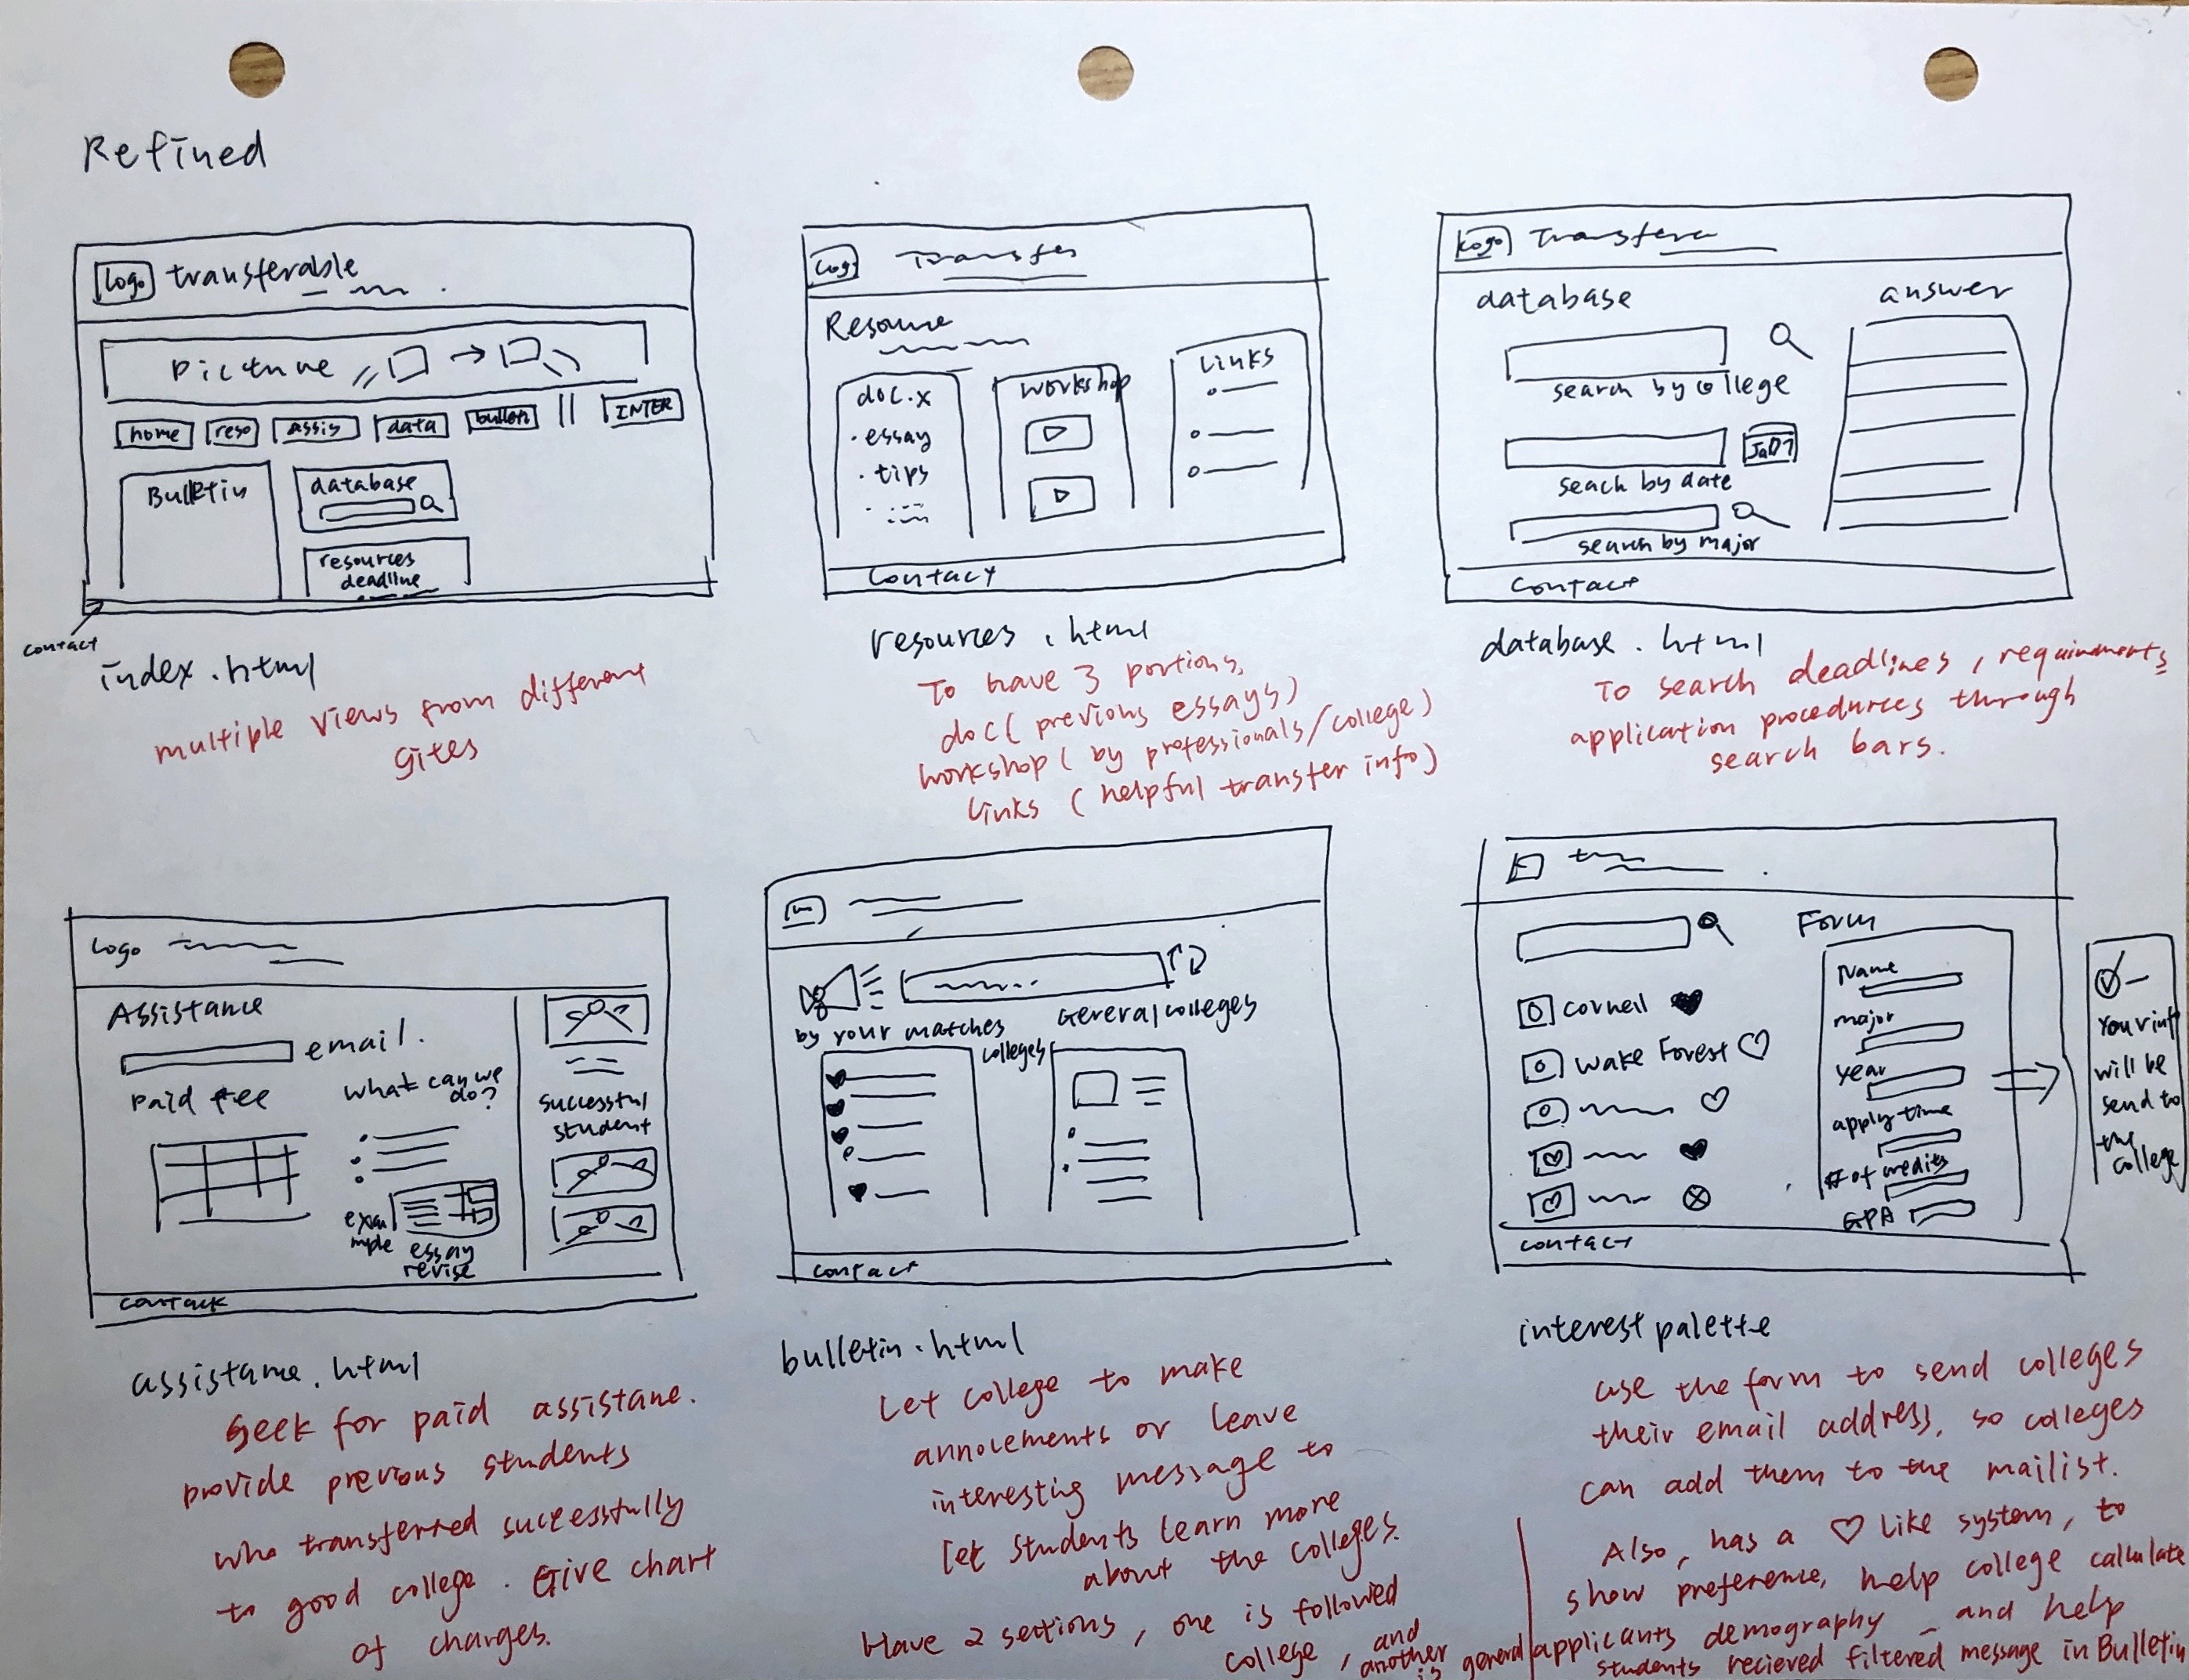 Refined
Logo transferable
Picture
home reso assis data bulletin INTER
Bulletin
database
resources
deadline
contact
index.html
multiple views from different
sites
Logo Transfer
Resource
doc.x
essay
tips
workshop
Links
Contact
resources.html
To have 3 portions,
doc (previous essays)
workshop (by professionals/college)
links (helpful transfer info)
Logo
database
answer
search by college
seach by date
Jan 7
search by major
Contact
database.html
To search deadlines, requirements
application procedurces through
search bars.
Logo
Assistance
email.
Paid fee
what can we
do?
example
essay
revise
successful
student
contact
assistance.html
Seek for paid assistane.
provide previous students
who transferred successfully
to good college. Give chart
of charges.
by your matches
colleges
General colleges
contact
bulletin.html
Let college to make
annoucements or leave
interesting message to
let students learn more
about the colleges.
Have 2 sections, one is followed
college, and
another is general
Form
Cornell
Wake Forest
Name
major
year
apply time
# of credits
GPA
contact
Your info
will be
send to
the
college
interest palette
use the form to send colleges
their email address, so colleges
can add them to the mailist.
Also, has a ♡ like system, to
show preference, help college calculate
applicants demography and help
students recieved filtered message in Bulletin